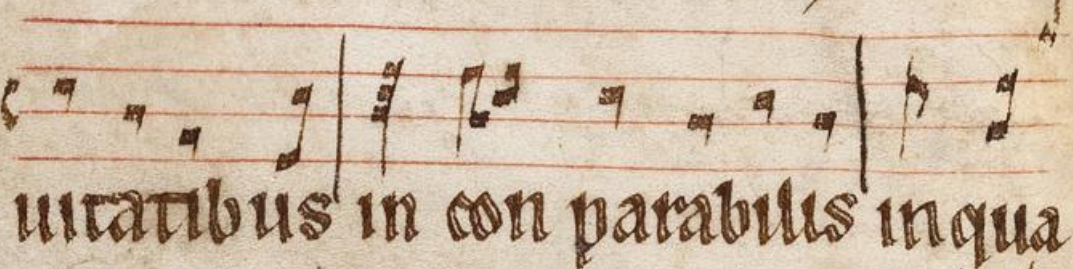 uitatibus in con parabilis inqua